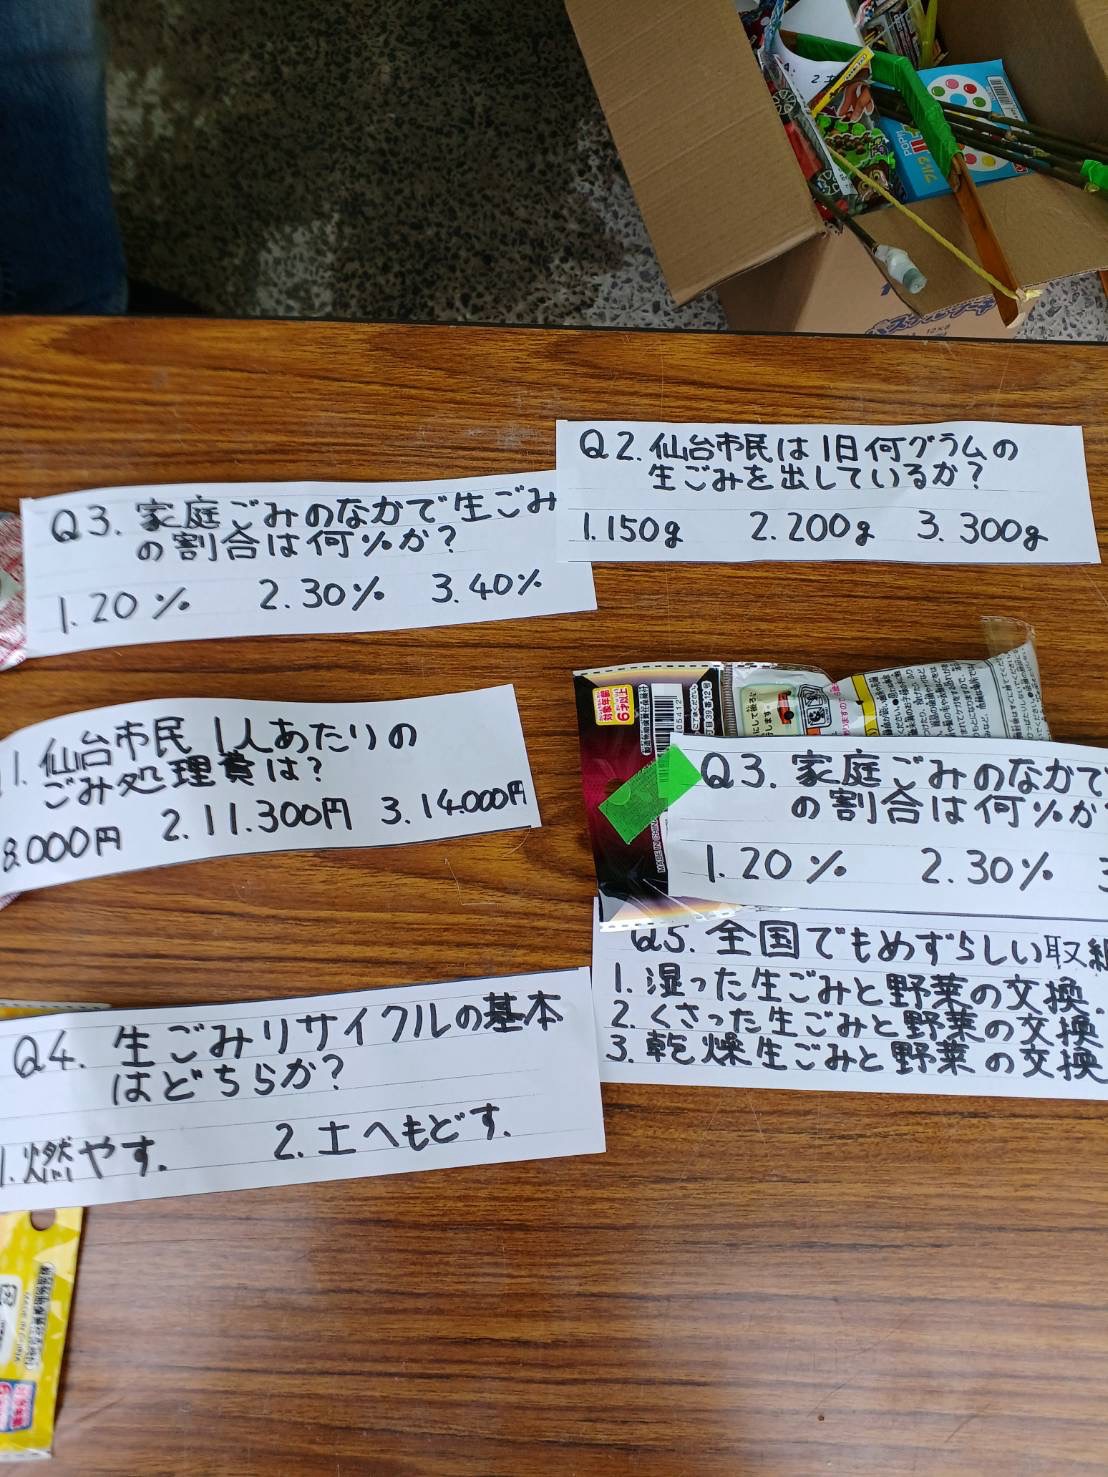 Q2. 仙台市民は1日何グラムの
生ごみを出しているか?
1.150g 2.200g 3.300g
Q3. 家庭ごみのなかで生ごみ
の割合は何%か?
1.20% 2.30% 3.40%
1. 仙台市民1人あたりの
ごみ処理費は?
8.000円 2.11.300円 3.14.000円
対象年齢
6才以上
Q3. 家庭ごみのなかで
の割合は何%か
1.20% 2.30% 3
Q4. 生ごみリサイクルの基本
はどちらか?
1.燃やす. 2.土へもどす.
Q5. 全国でもめずらしい取組
1. 湿った生ごみと野菜の交換.
2. くさった生ごみと野菜の交換
3. 乾燥生ごみと野菜の交換